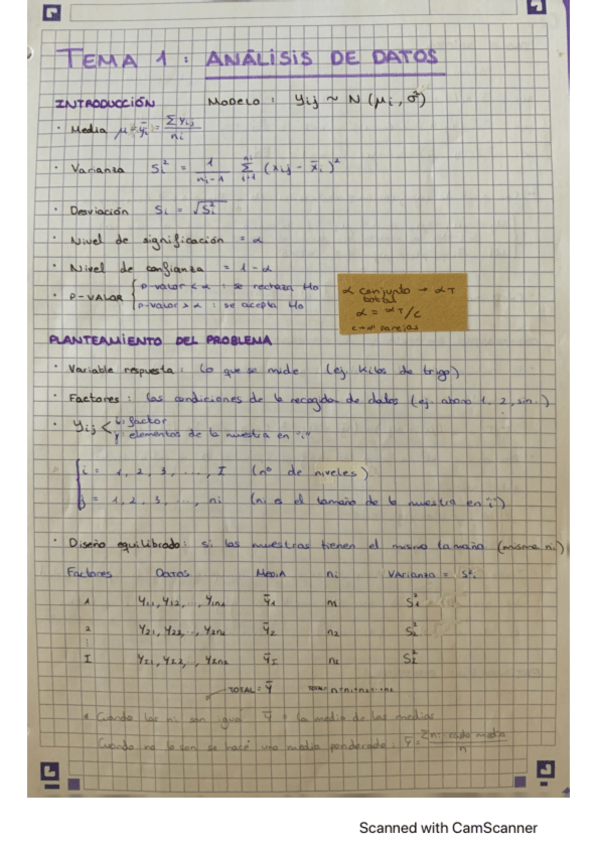 TEMA 1: ANÁLISIS DE DATOS
INTRODUCCIÓN Modelo: Yij ~ N (μi, σ²)
· Media μ = ȳi = Σyij / ni
· Varianza Si² = 1/(ni-1) Σ (xij - x̄i)²
· Desviación Si = √Si²
· Nivel de significación = α
· Nivel de confianza = 1 - α
· P-VALOR { p-valor < α : se rechaza Ho
p-valor > α : se acepta Ho
α conjunto → αT
total
α = αT/c
c → nº parejas
PLANTEAMIENTO DEL PROBLEMA
· Variable respuesta: lo que se mide (ej. Kilos de trigo)
· Factores: las condiciones de la recogida de datos (ej. abono 1, 2, sin.)
· Yij < i: factor
j: elementos de la muestra en "i"
i = 1, 2, 3, ...., I (nº de niveles)
j = 1, 2, 3, ...., ni (ni es el tamaño de la muestra en "i")
· Diseño equilibrado: si las muestras tienen el mismo tamaño (mismo ni)
Factores Datos Media ni Varianza = Si²
1 Y11, Y12, .., Y1n1 ȳ1 n1 S1²
2 Y21, Y22, .., Y2n2 ȳ2 n2 S2²
⋮
I ȳI SI²
TOTAL = ȳ TOTAL: n = n1 + n2 +
* Cuando las ni son igual ȳ = la media de las medias
Cuando no lo son se hace una media ponderada: ȳ =
Scanned with CamScanner